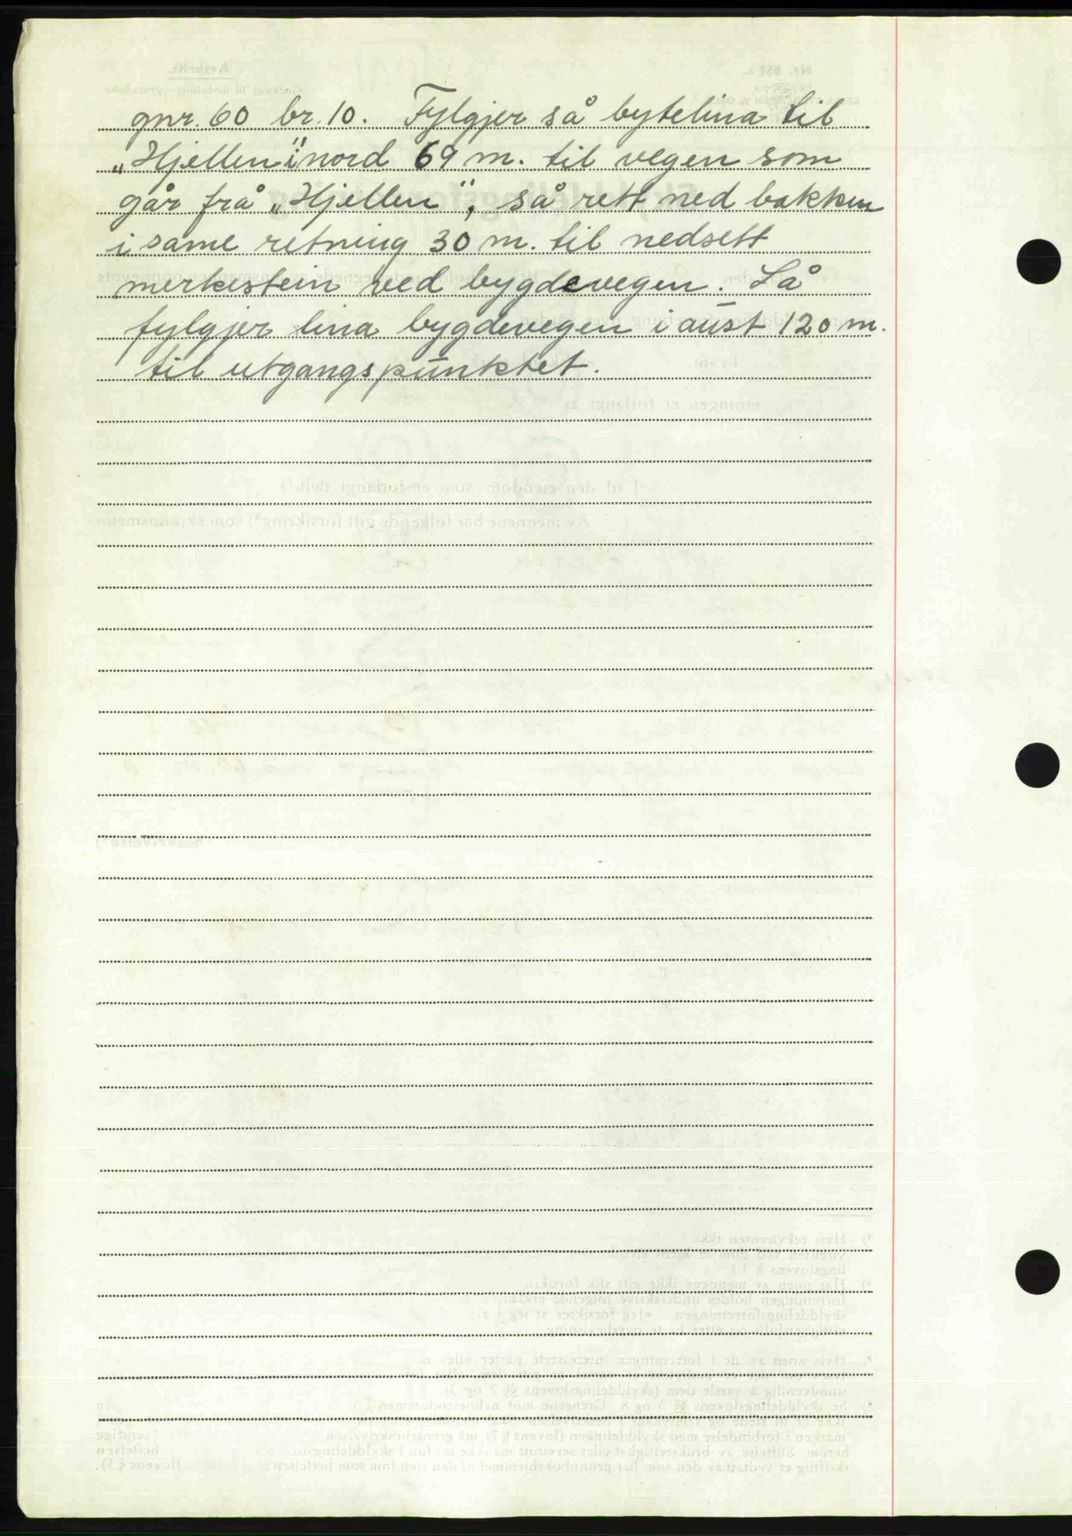 gnr. 60 br. 10. Fylgjer så bytelina til
„Hjellen" i nord 69 m. til vegen som
går frå „Hjellen", så rett ned bakken
i same retning 30 m. til nedsett
merkestein ved bygdevegen. Så
fylgjer lina bygdevegen i aust 120 m.
til utgangspunktet.